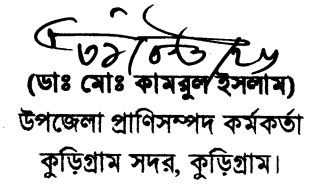 (ডাঃ মোঃ কামরুল ইসলাম)
উপজেলা প্রাণিসম্পদ কর্মকর্তা
কুড়িগ্রাম সদর, কুড়িগ্রাম।